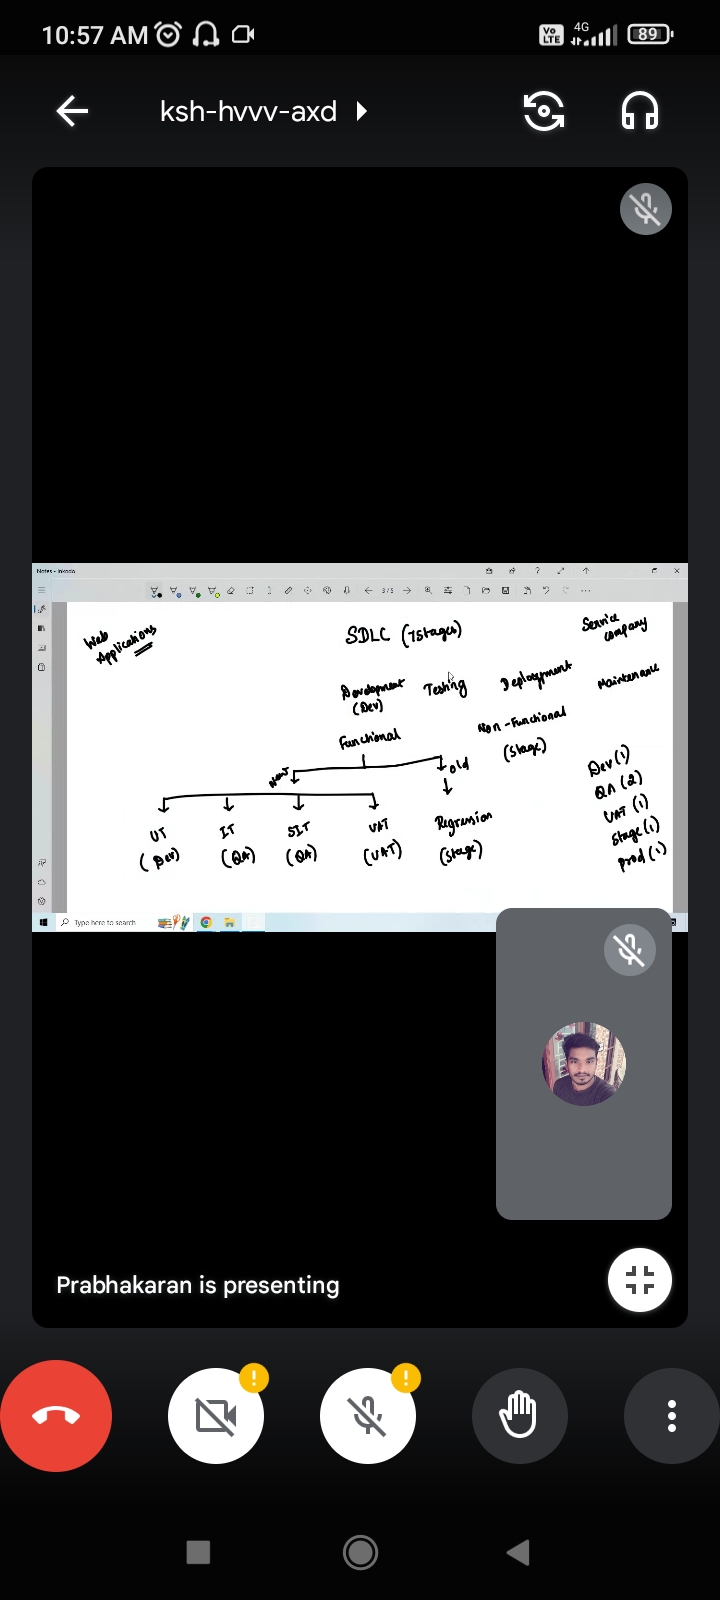 10:57 AM
Vo LTE 4G 89
ksh-hvvv-axd
Notes - Inkodo
3 / 5
Web Applications
SDLC (7 Stages)
Service company
Development (Dev)
Testing
Deployment
Maintenance
Functional
Non-Functional (Stage)
New
Old
UT (Dev)
IT (QA)
SIT (QA)
UAT (UAT)
Regression (Stage)
Dev (1)
QA (2)
UAT (1)
Stage (1)
prod (1)
Type here to search
Prabhakaran is presenting